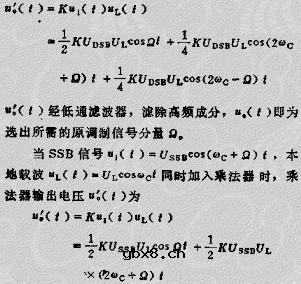 u′o(t)=Kui(t)uL(t)
=1/2 KUDSBULcosΩt+1/4 KUDSBULcos(2ωC
+Ω)t+1/4 KUDSBULcos(2ωC-Ω)t
u′o(t)经低通滤波器,滤除高频成分,uo(t)即为
选出所需的原调制信号分量Ω。
当SSB信号ui(t)=USSBcos(ωC+Ω)t,本
地载波uL(t)=ULcosωCt同时加入乘法器时,乘
法器输出电压u′o(t)为
u′o(t)=Kui(t)uL(t)
=1/2 KUSSBULcosΩt+1/2 KUSSBUL
×(2ωC+Ω)t
gbx8.cn